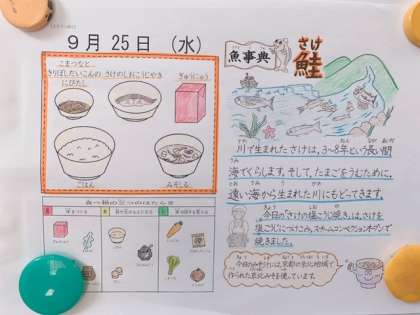 9月25日（水）
こまつなと
きりぼしだいこんの
にびたし
さけのしおこうじやき
ぎゅうにゅう
ごはん
みそしる
魚事典
さけ
鮭
川で生まれたさけは、3~8年という長い間
海でくらします。そして、たまごをうむために、
遠い海から生まれた川にもどってきます。
今日の「さけの塩こうじ焼き」は、さけを
塩こうじにつけこみ、スチームコンベクションオーブンで
焼きました。
今日のみそしるは、京都の京北地域で
作られた京北みそを使っています。